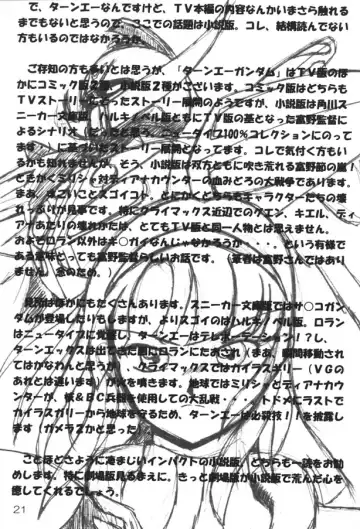 で、ターンエーなんですけど、TV本編の内容なんかいまさら触れる
までもないと思うので、ここでの話題は小説版。コレ、結構読んでない
方もいるのではなかろうか。
ご存知の方も多いとは思うが、「ターンエーガンダム」はTV版のほ
かにコミック版2種、小説版2種がございます。コミック版はどちらも
TVストーリーにそったストーリー展開のようですが、小説版は角川ス
ニーカー文庫版、ハルキノベル版ともにTV版の基となった富野監督に
よるシナリオ(だったと思う。ニュータイプ100%コレクションにのって
ます)に基づいたストーリー展開となってます。コレで気付く方もい
るかも知れませんが、そう、小説版は双方ともに吹き荒れる富野節の嵐!
とにかくミリシャ対ディアナカウンターの血みどろの大戦争であります。
まあ、すごいことスゴイコト。とにかくどちらもキャラクターたちの壊
れっぷりが見事です。特にクライマックス近辺でのグエン、キエル、ディ
アナあたりの壊れかたは、とてもTV版と同一人物とは思えません。
およそロラン以外はキ○ガイなんじゃなかろうか・・・、という有様で
ある意味とっても富野監督らしいお話です。(筆者は富野さんではあり
ません。念のため。)
見所はほかにもたくさんあります。スニーカー文庫版ではサ○コガン
ダムが登場したりもしますが、よりスゴイのはハルキノベル版。ロラン
はニュータイプに覚醒し、ターンエーはテレポーテーション!?し、
ターンエックスは出てきた順にロランにたおされ(まあ、瞬間移動され
てはかなわんと思うが)、クライマックスではカイラスギリー(VGの
あれとは違います)が火を噴きます。地球ではミリシャとディアナカウ
ンターが、核&BC兵器を使用しての大乱戦・・・・、トドメにラストで
カイラスギリーから地球を守るため、ターンエーは必殺技!!を披露し
ます(ガメラ2かと思った)。
ことほどさように凄まじいインパクトの小説版、どちらも一読をお勧
めします。特に劇場版見るまえに。きっと劇場版が小説版で荒んだ心を
癒してくれるでしょう。
21